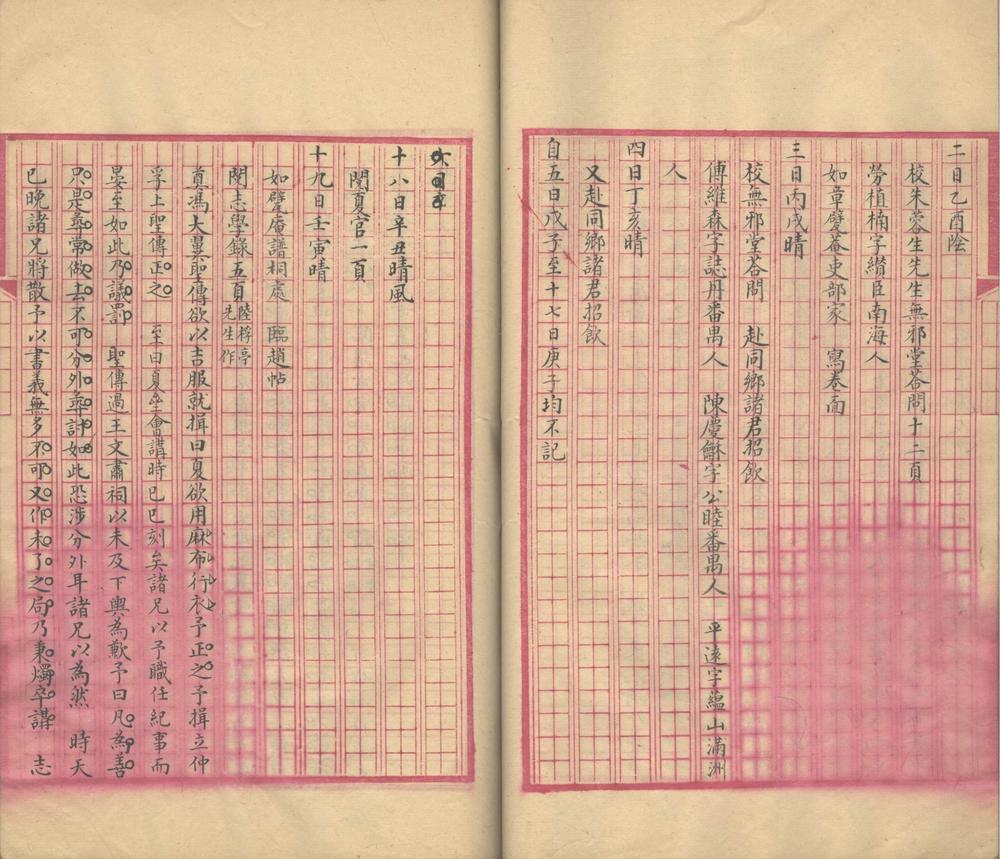 二日乙酉陰
校朱蓉生先生無邪堂荅問十二頁
勞植楠字纘臣南海人
如章甓菴吏部家　寫卷面
三日丙戌晴
校無邪堂荅問　赴同鄉諸君招飲
傅維森字誌丹番禺人　陳慶龢字公睦番禺人　平遠字蘊山滿洲
人
四日丁亥晴
又赴同鄉諸君招飲
自五日戊子至十七日庚子均不記
十八日辛丑晴風
閱夏官一頁
十九日壬寅晴
如甓庵譜桐處　臨趙帖
閱志學錄五頁陸桴亭先生作
真馮大翼聖傳欲以吉服就揖曰夏欲用麻布行衣予正之予揖立仲
孚上聖傳正之　至曰夏𡊮會講時已巳刻矣諸兄以予職任紀事而
晏至如此乃議罰　聖傳過王文肅祠以未及下輿為歉予曰凡為善
只是尋常做去不可分外尋討如此恐涉分外耳諸兄以為然　時天
已晚諸兄將散予以書義無多不可又作未了之局乃秉燭卒講　志